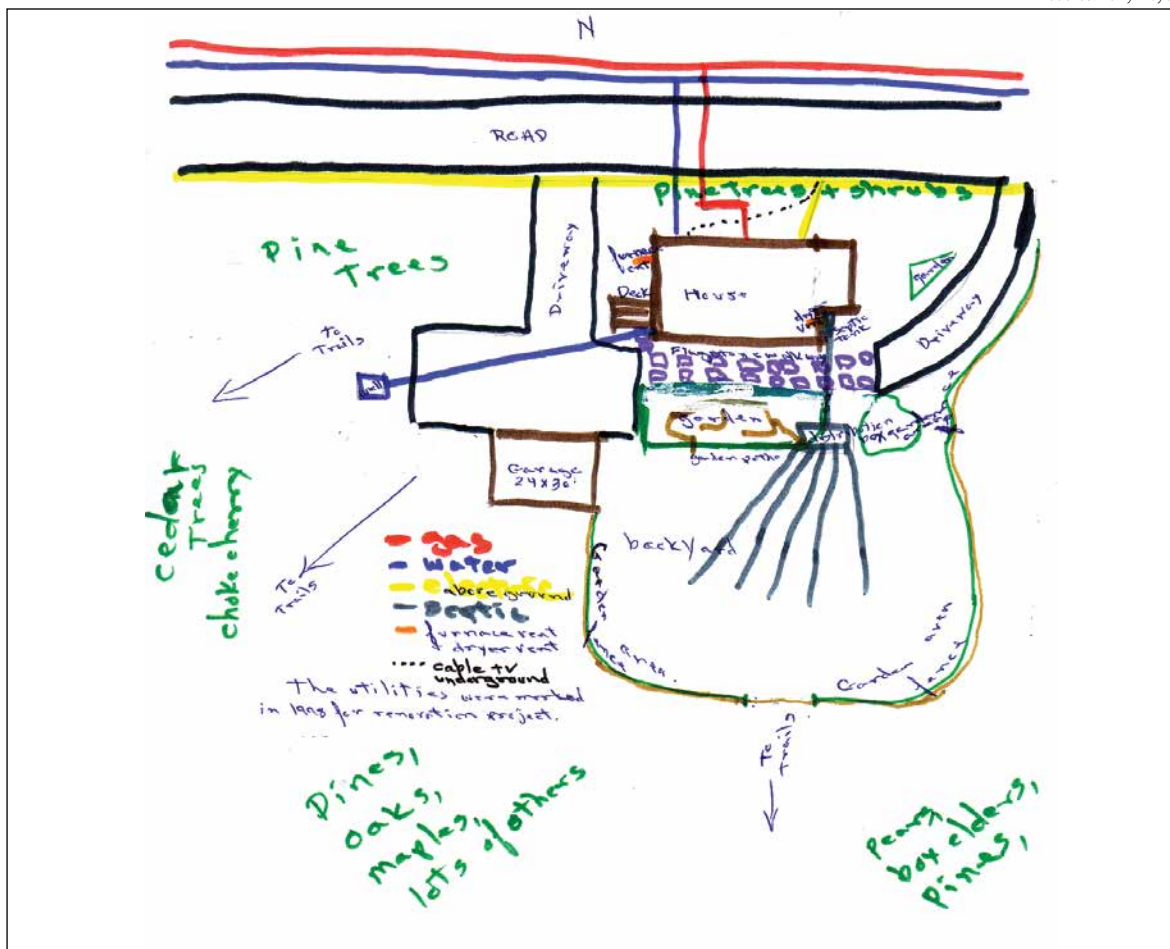 N
ROAD
Pine trees + shrubs
Pine
Trees
Driveway
furnace
vent
Deck
House
garden
dryer
vent
septic
tank
Driveway
To
Trails
well
Flagstone walkway
garden
garden paths
box
Garage
24x30'
Cedar
Trees
chokecherry
To
Trails
backyard
gas
water
electric
above ground
septic
furnace vent
& dryer vent
cable tv
underground
The utilities were marked
for renovation project.
in
Garden
fence
area
Garden area
fence
To
Trails
Pines,
oaks,
maples,
lots of others
Pears,
box elders,
pines,